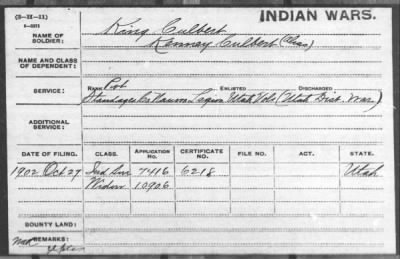 (3-H-11)
INDIAN WARS.
NAME OF SOLDIER: King, Culbert
Culbert (Alias)
NAME AND CLASS OF DEPENDENT:
SERVICE: RANK Pvt ENLISTED DISCHARGED
Co Nauvoo Legion Utah Vols (Utah Ind. War)
ADDITIONAL SERVICE:
DATE OF FILING. CLASS. APPLICATION No. CERTIFICATE No. FILE NO. ACT. STATE.
1902 Oct 27 Ind Sur 7416 6218 Utah
Widow 10906
BOUNTY LAND:
REMARKS: